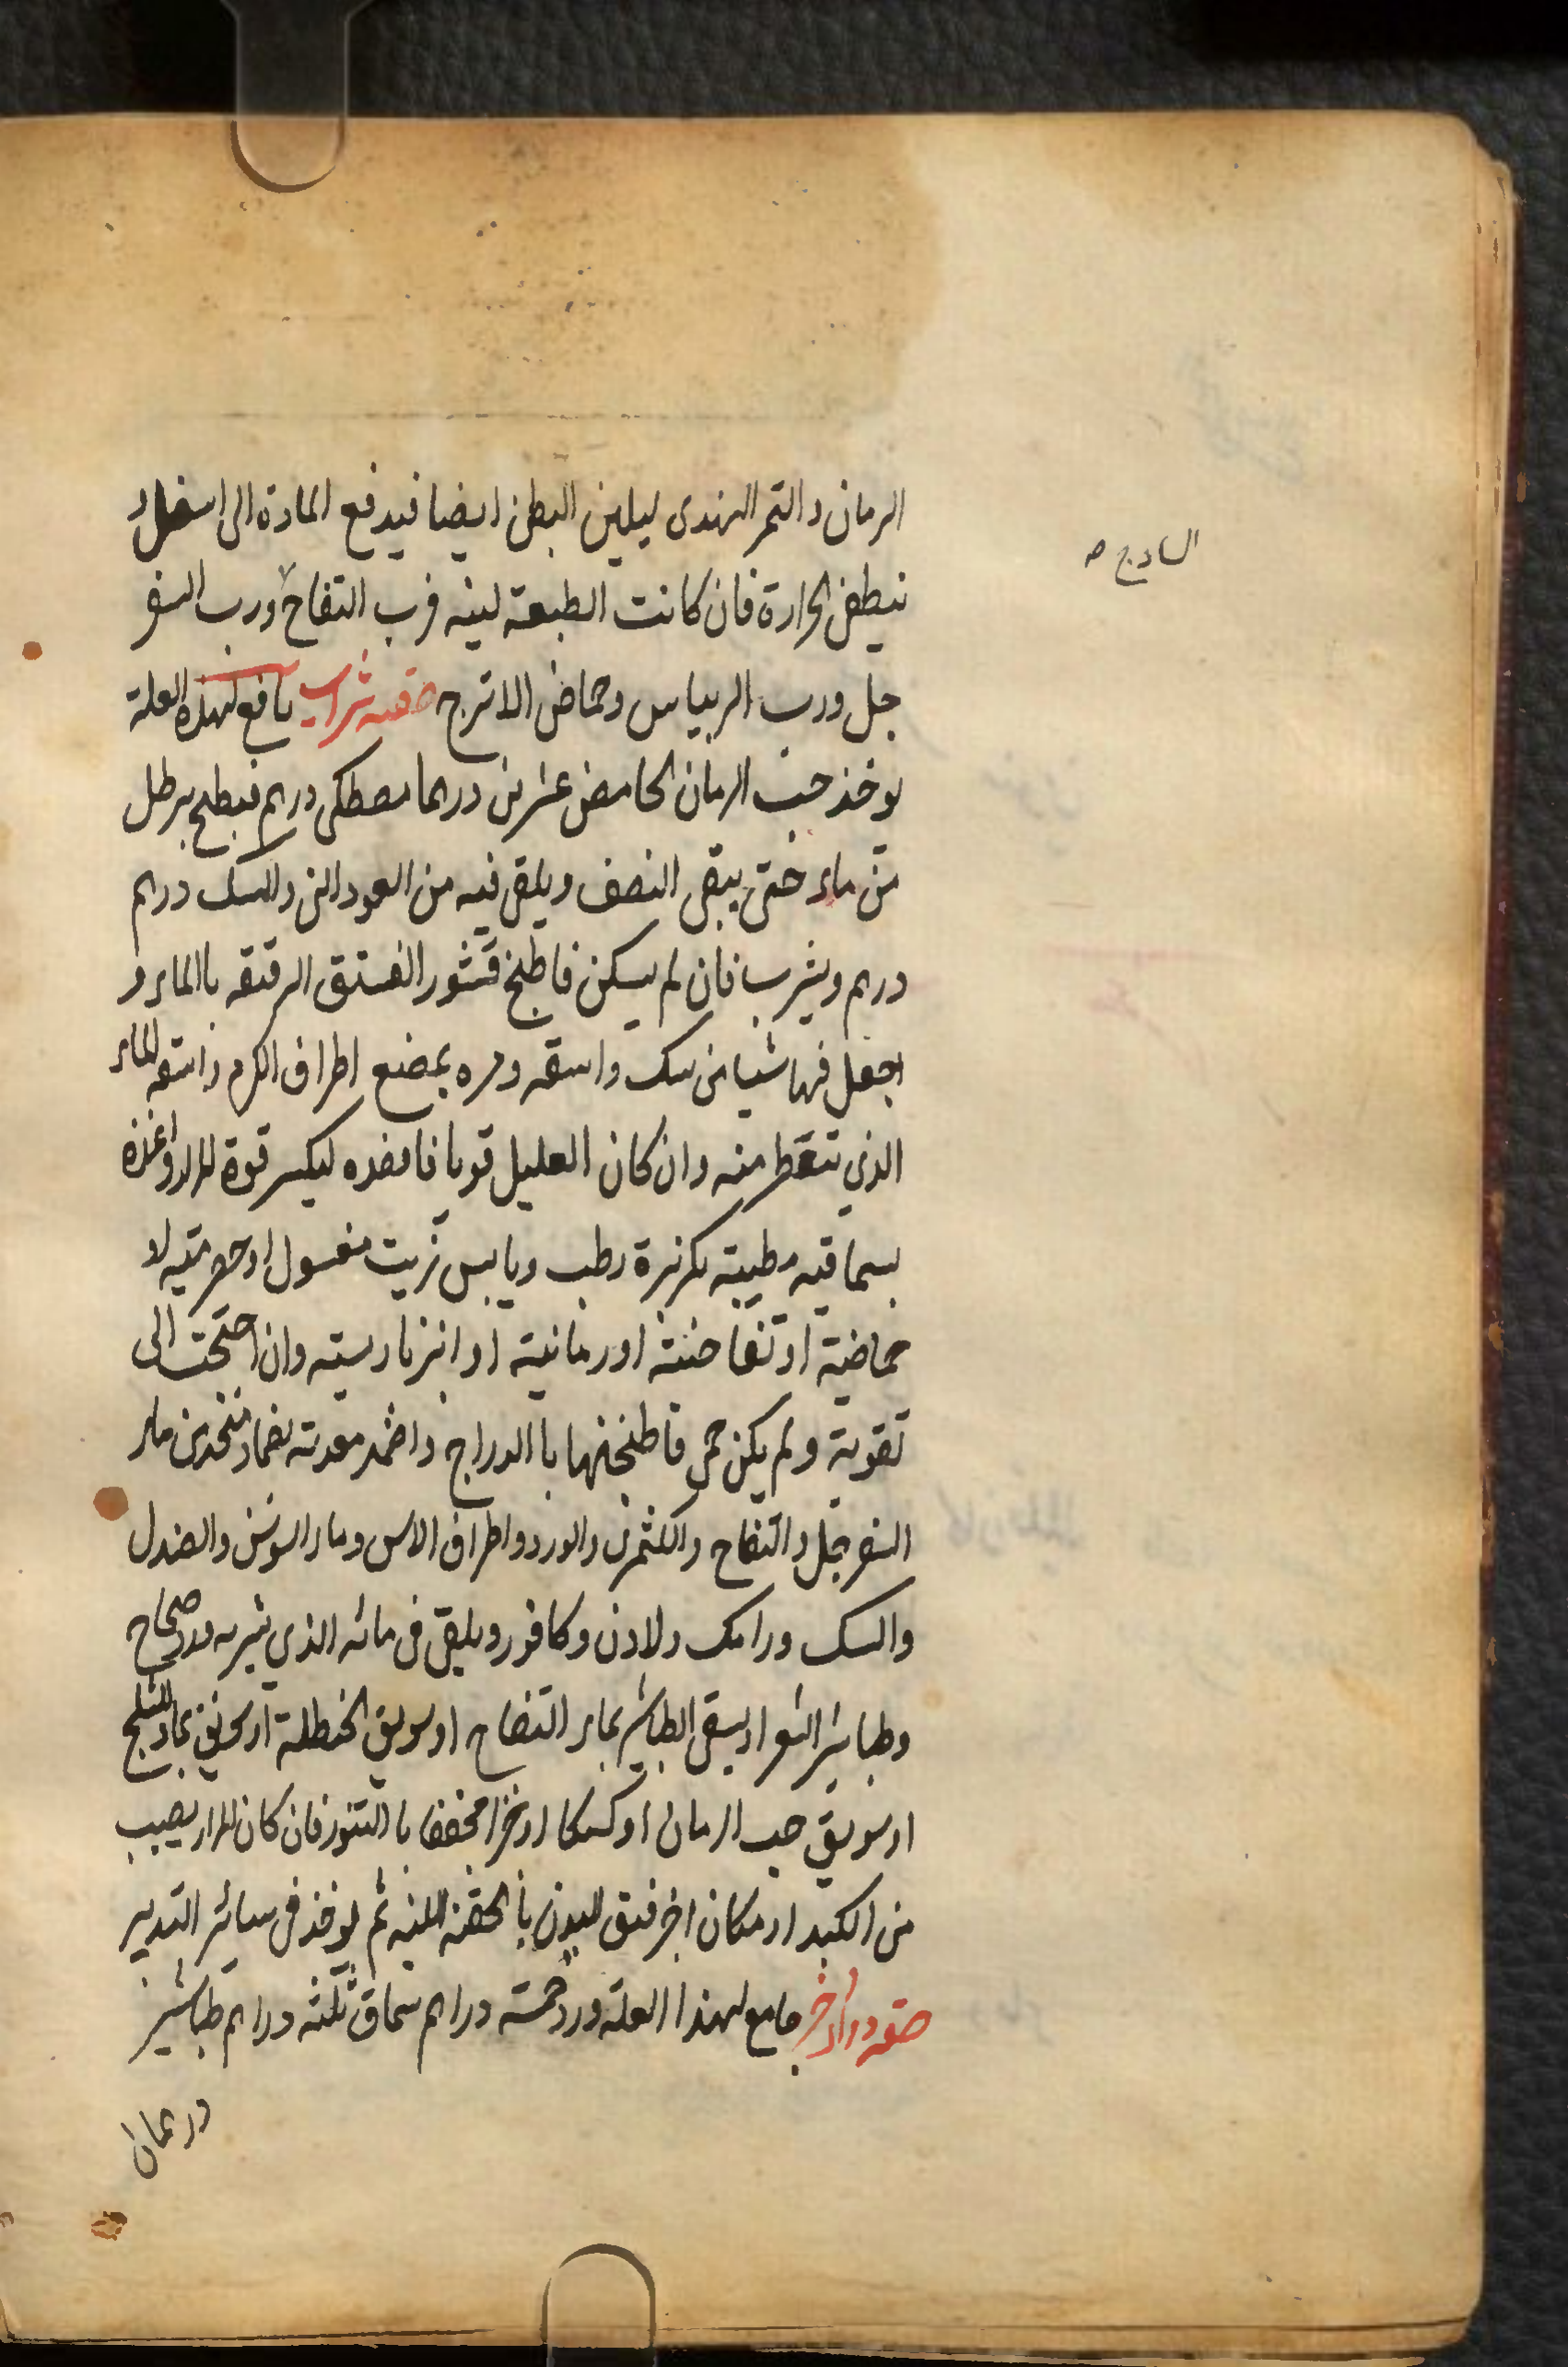 الرمان والتمر الهندى ليلين البطن ايضا فيدفع المادة الى اسفل و
الساذج صح
نيطفى الحرارة فان كانت الطبعة لينه فرب التفاح ورب السفر
جل ورب الريباس وحماض الاترج صفه شراب نافع لهذه العلة
يوخذ حب الرمان الحامض عشرين درهما مصطكى درهم فيطبخ برطل
من ماء حتى يبقى النصف ويلقى فيه من العود النى والسك درهم
درهم ويشرب فان لم يسكن فاطبخ قشور الفستق الرقيقه باالماء و
اجعل فيها شيا من سك واسقه ومره بمضع اطراف الكرم واسقه الماء
الذي تنقط منه وان كان العليل قويا فافصده ليكسر قوة المرار واغذه
بسماقيه مطيبته بكزبرة رطب ويابس زيت مغسول او حصرميه لا
حماضية او تفاحيته او رمانية او انبرباريسيه وان احتجت الى
تقوية ولم يكن حمى فاطبخها باالدراج واضمد معدته بضماد متخد من ماء
السفرجل والتفاح والكثمرى والورد واطراف الاس وماء السوسن والصندل
والسك ورامك ولادن وكافور ويلقى فى مائه الذي يشربه ورد صحاح
وطباشير او يسقى الطباشير بماء التفاح او سويق الحنطلة او سويق بماء الثلج
او سويق حب الرمان او كعكا او خبزا مخففا باالتنور فان كان المرار يصيب
من الكبد او مكان اخر فنق البدن باالحقنه اللينه ثم يوخذ فى سائر التدبير
صفه دواء اخر جامع لهذا العلته ورد خمسته دراهم سماق ثلثه دراهم طباشير
درهمان